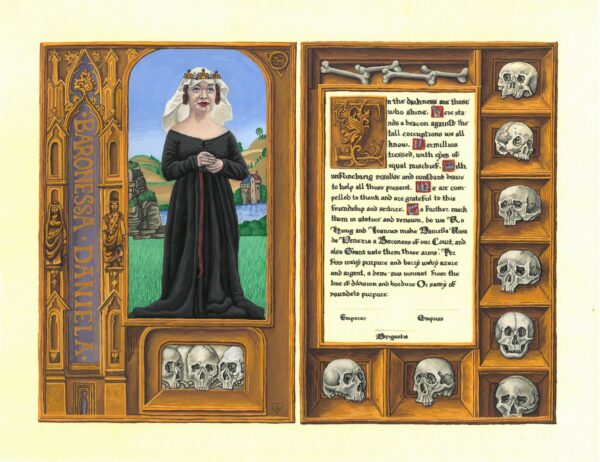 BARONESSA · DANIELA
In the darkness are those
who shine. Here sta
nds a beacon against the
corruptions we all
know. Vermillion
tressed, with eyes of
equal mischief. With
unflinching resolve and constant desire
to help all those present. We are com
pelled to thank and are grateful to this
friendship and To further mark
them in stature and renown, do we
and Ioannes make
de Venezia a Baroness of our Court, and
also Grant unto them these arms: Per
fess wavy purpure and barry wavy azure
and argent, a demi-sun issuant from the
line of division and bordure Or semy of
roundels purpure.
Emperor Empress
Brigantia